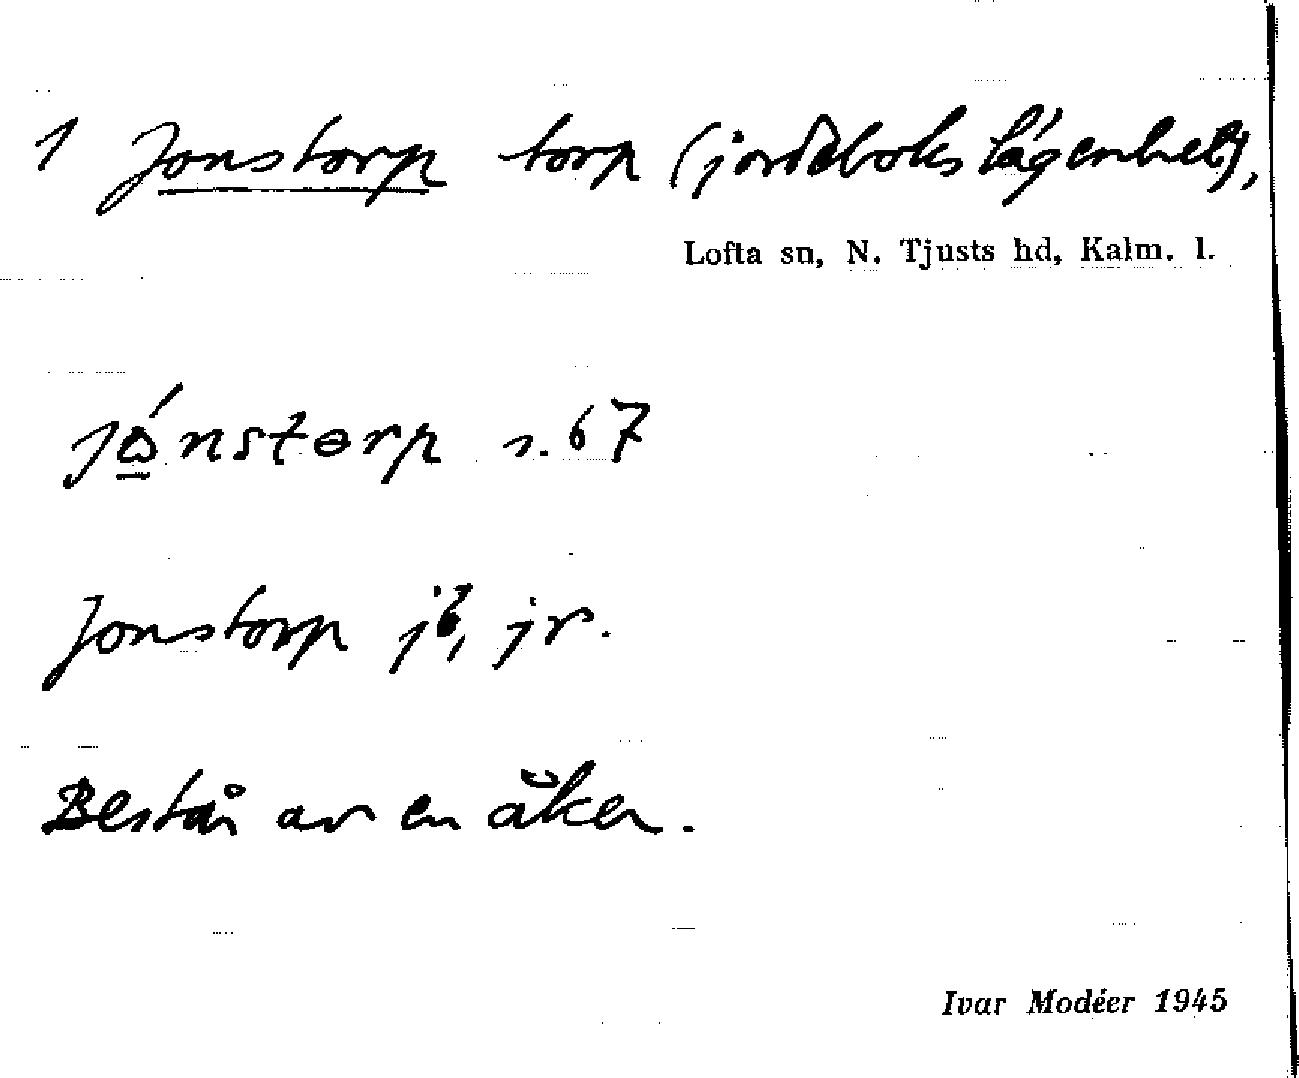 1 Jonstorp torp (jordebokslägenhet),
Lofta sn, N. Tjusts hd, Kalm. l.
s. 67
Jonstorp jb, jr.
Består av en åker.
Ivar Modéer 1945